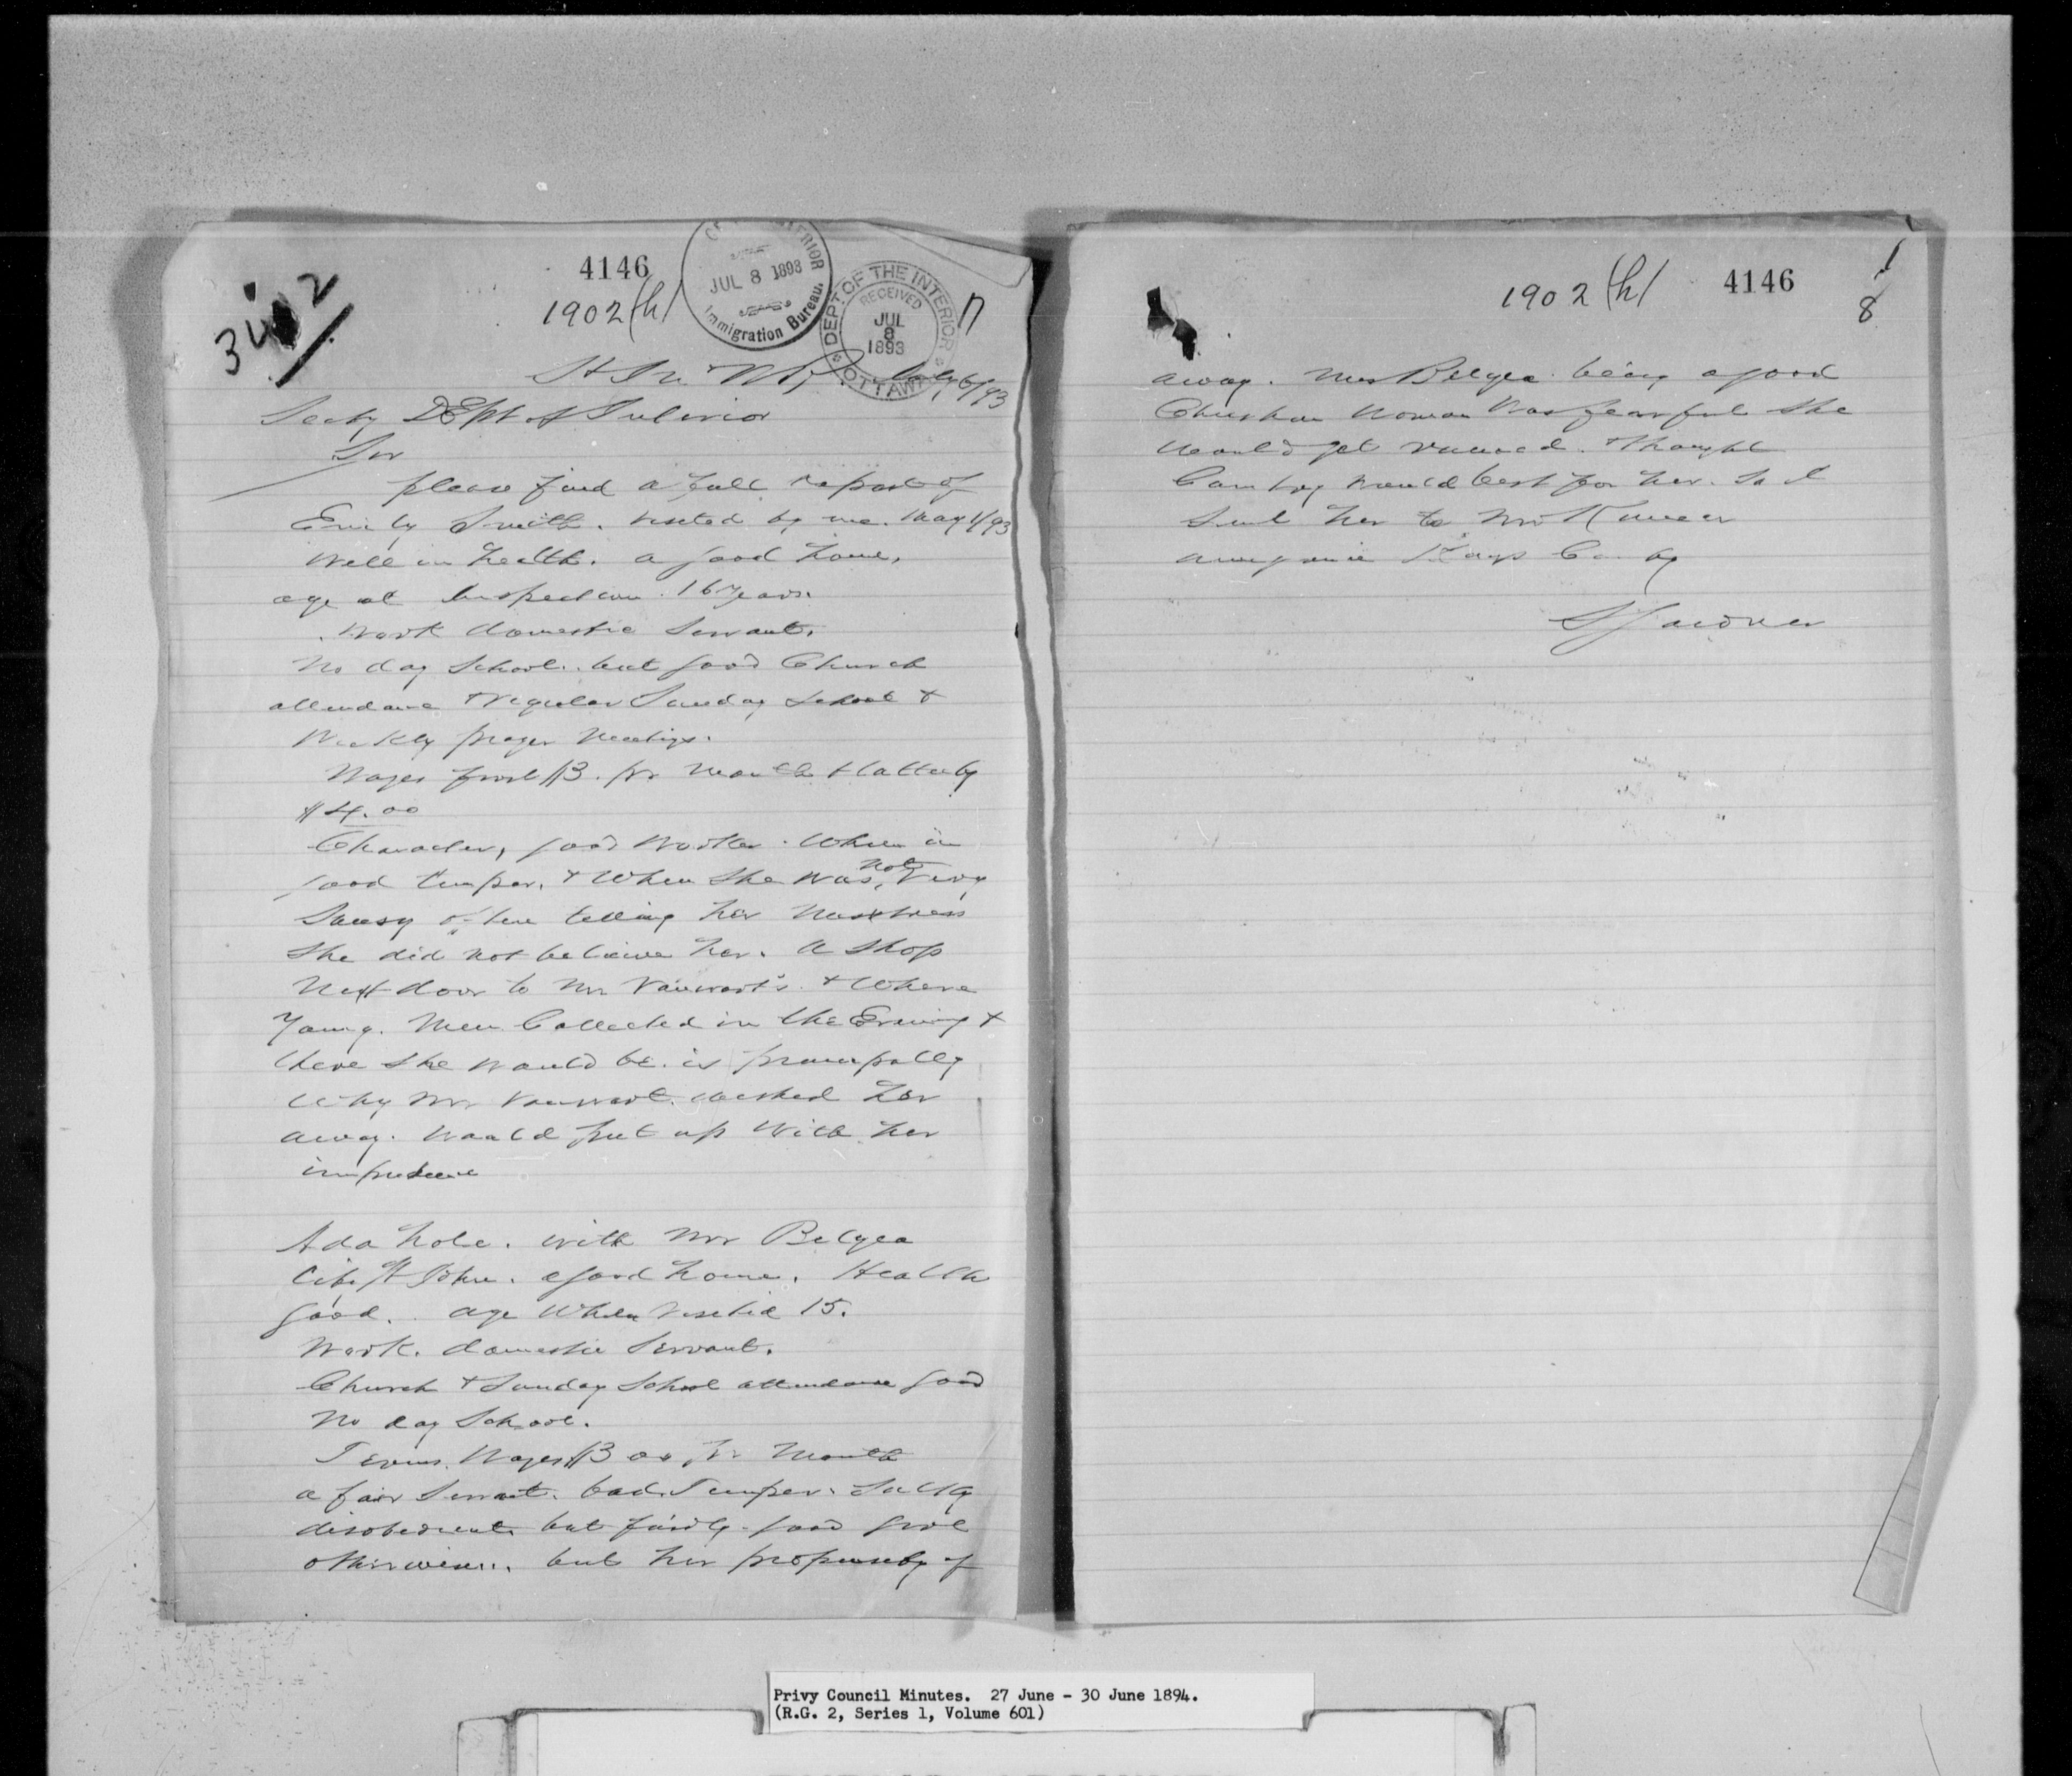 4146
1902 (h)
OF INTERIOR
JUL 8 1893
Immigration Bureau.
DEPT. OF THE INTERIOR
RECEIVED
JUL
8
1893
OTTAWA
7
July 6/93
Secty Dept of Interior
Sir
please find a full report of
Emily Smith. visited by me. May 1/93
Well in health. a good home,
age at Inspection. 16 years.
Work domestic Servant.
No day School. but good Church
attendance & regular Sunday School &
Weekly prayer Meetings.
Wages first $3. pr Month & latterly
$4.00
Character, good Worker. When in
good temper. & When She was not, Very
Saucy often telling her Mistress
She did not believe her. A Shop
Next door to Mrs Vanwart's. & Where
Young. Men Collected in the Evening &
there She would be. is principally
Why Mrs Vanwart. wished her
away. Would put up With her
impudence
Ada hole. with Mrs Belyea
City St John. a good home. Health
good. age When Visited 15.
Work. domestic Servant.
Church & Sunday School attendance good
No day School.
Terms. Wages $3 00 pr Month
a fair Servant. bad Temper. Sulky
disobedient but fairly good girl
otherwise. but her propensity of
1902 (h) 4146
8
away. Mrs Belyea being a good
Christian Woman Was fearful She
would get ruined. & thought
Country would best for her. So I
Sent her to Mr
Kings County
S Gardner
Privy Council Minutes. 27 June - 30 June 1894.
(R.G. 2, Series 1, Volume 601)